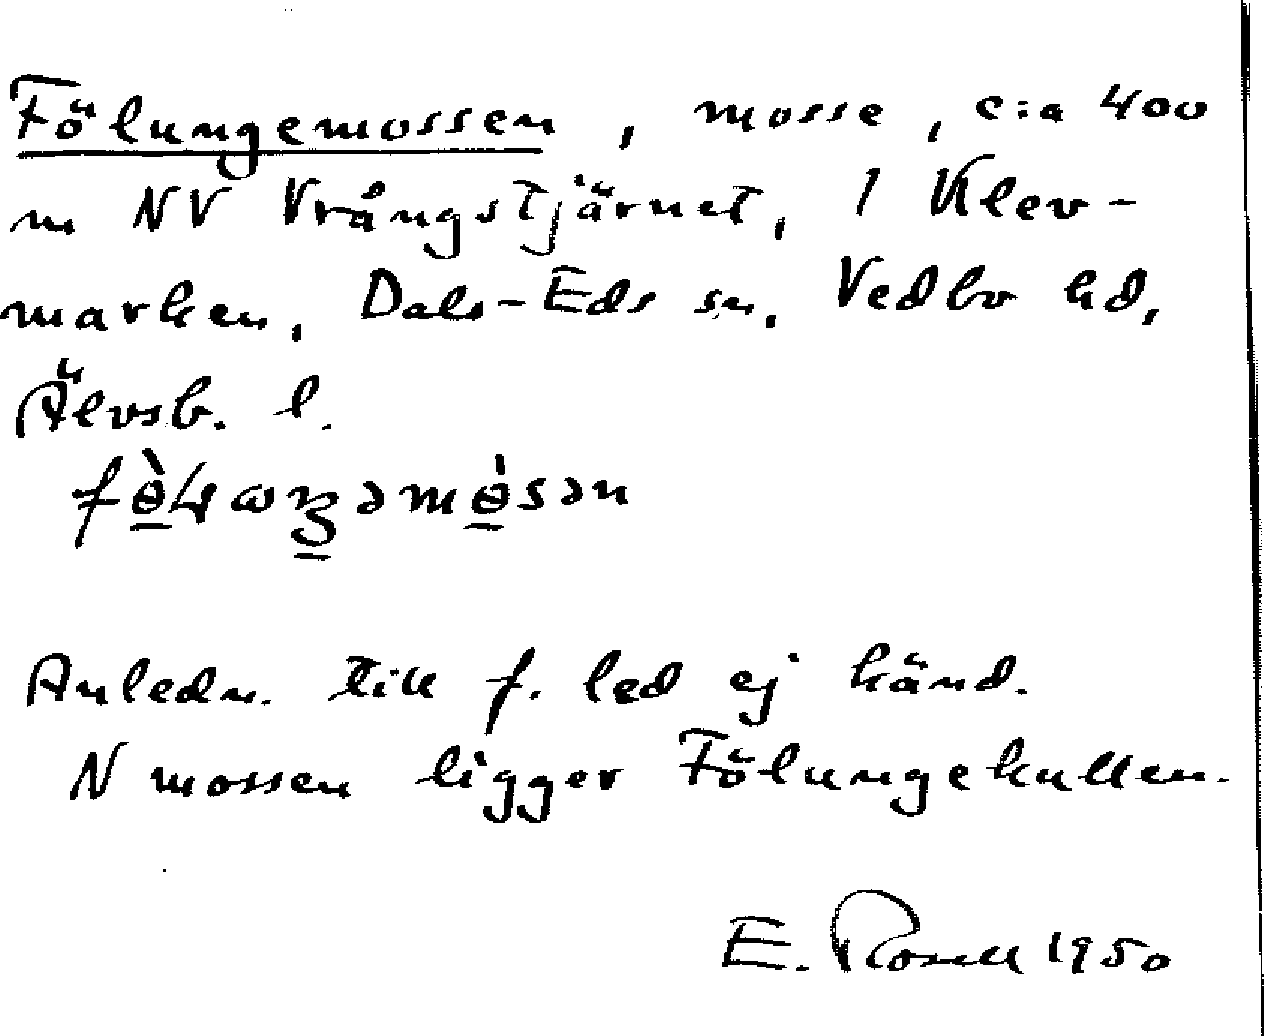 Fölungemossen, mosse, c:a 400
m NV Vrångstjärnet, 1 Klev-
marken, Dals-Eds sn, Vedbo hd,
Älvsb. l.
Anledn. till f. led ej känd.
N mossen ligger Fölungekullen.
E. Rosell 1950